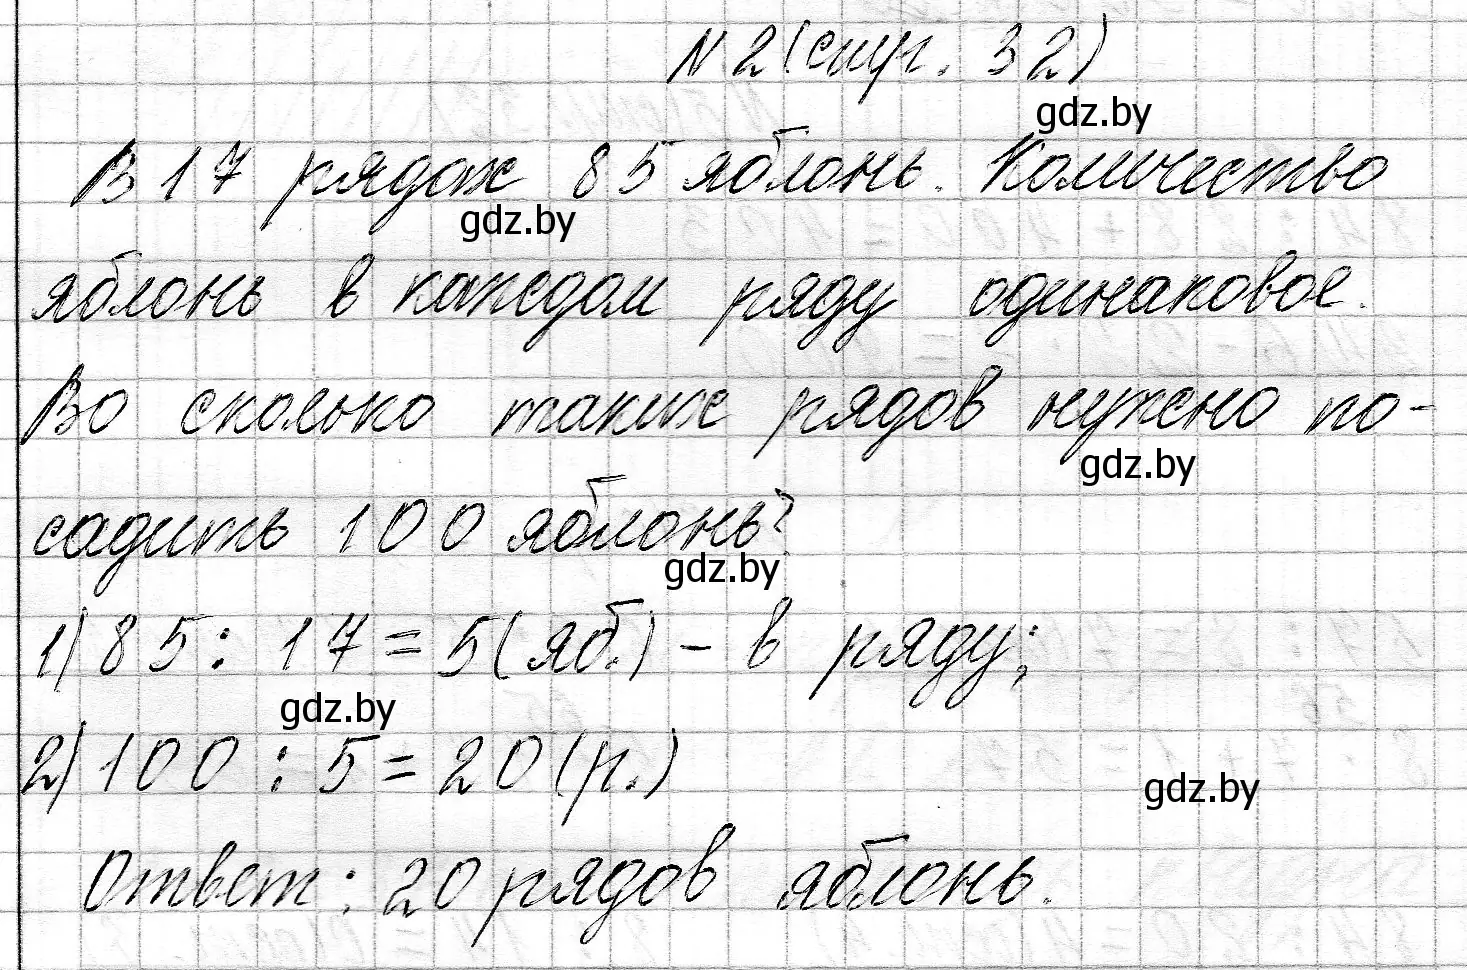 N 2 (стр. 32)
gdz.by
В 17 рядах 85 яблонь. Количество
gdz.by
яблонь в каждом ряду одинаковое.
Во сколько таких рядов нужно по-
gdz.by
садить 100 яблонь?
gdz.by
1) 85 : 17 = 5 (яб.) - в ряду;
gdz.by
2) 100 : 5 = 20 (р.)
gdz.by
Ответ: 20 рядов яблонь.